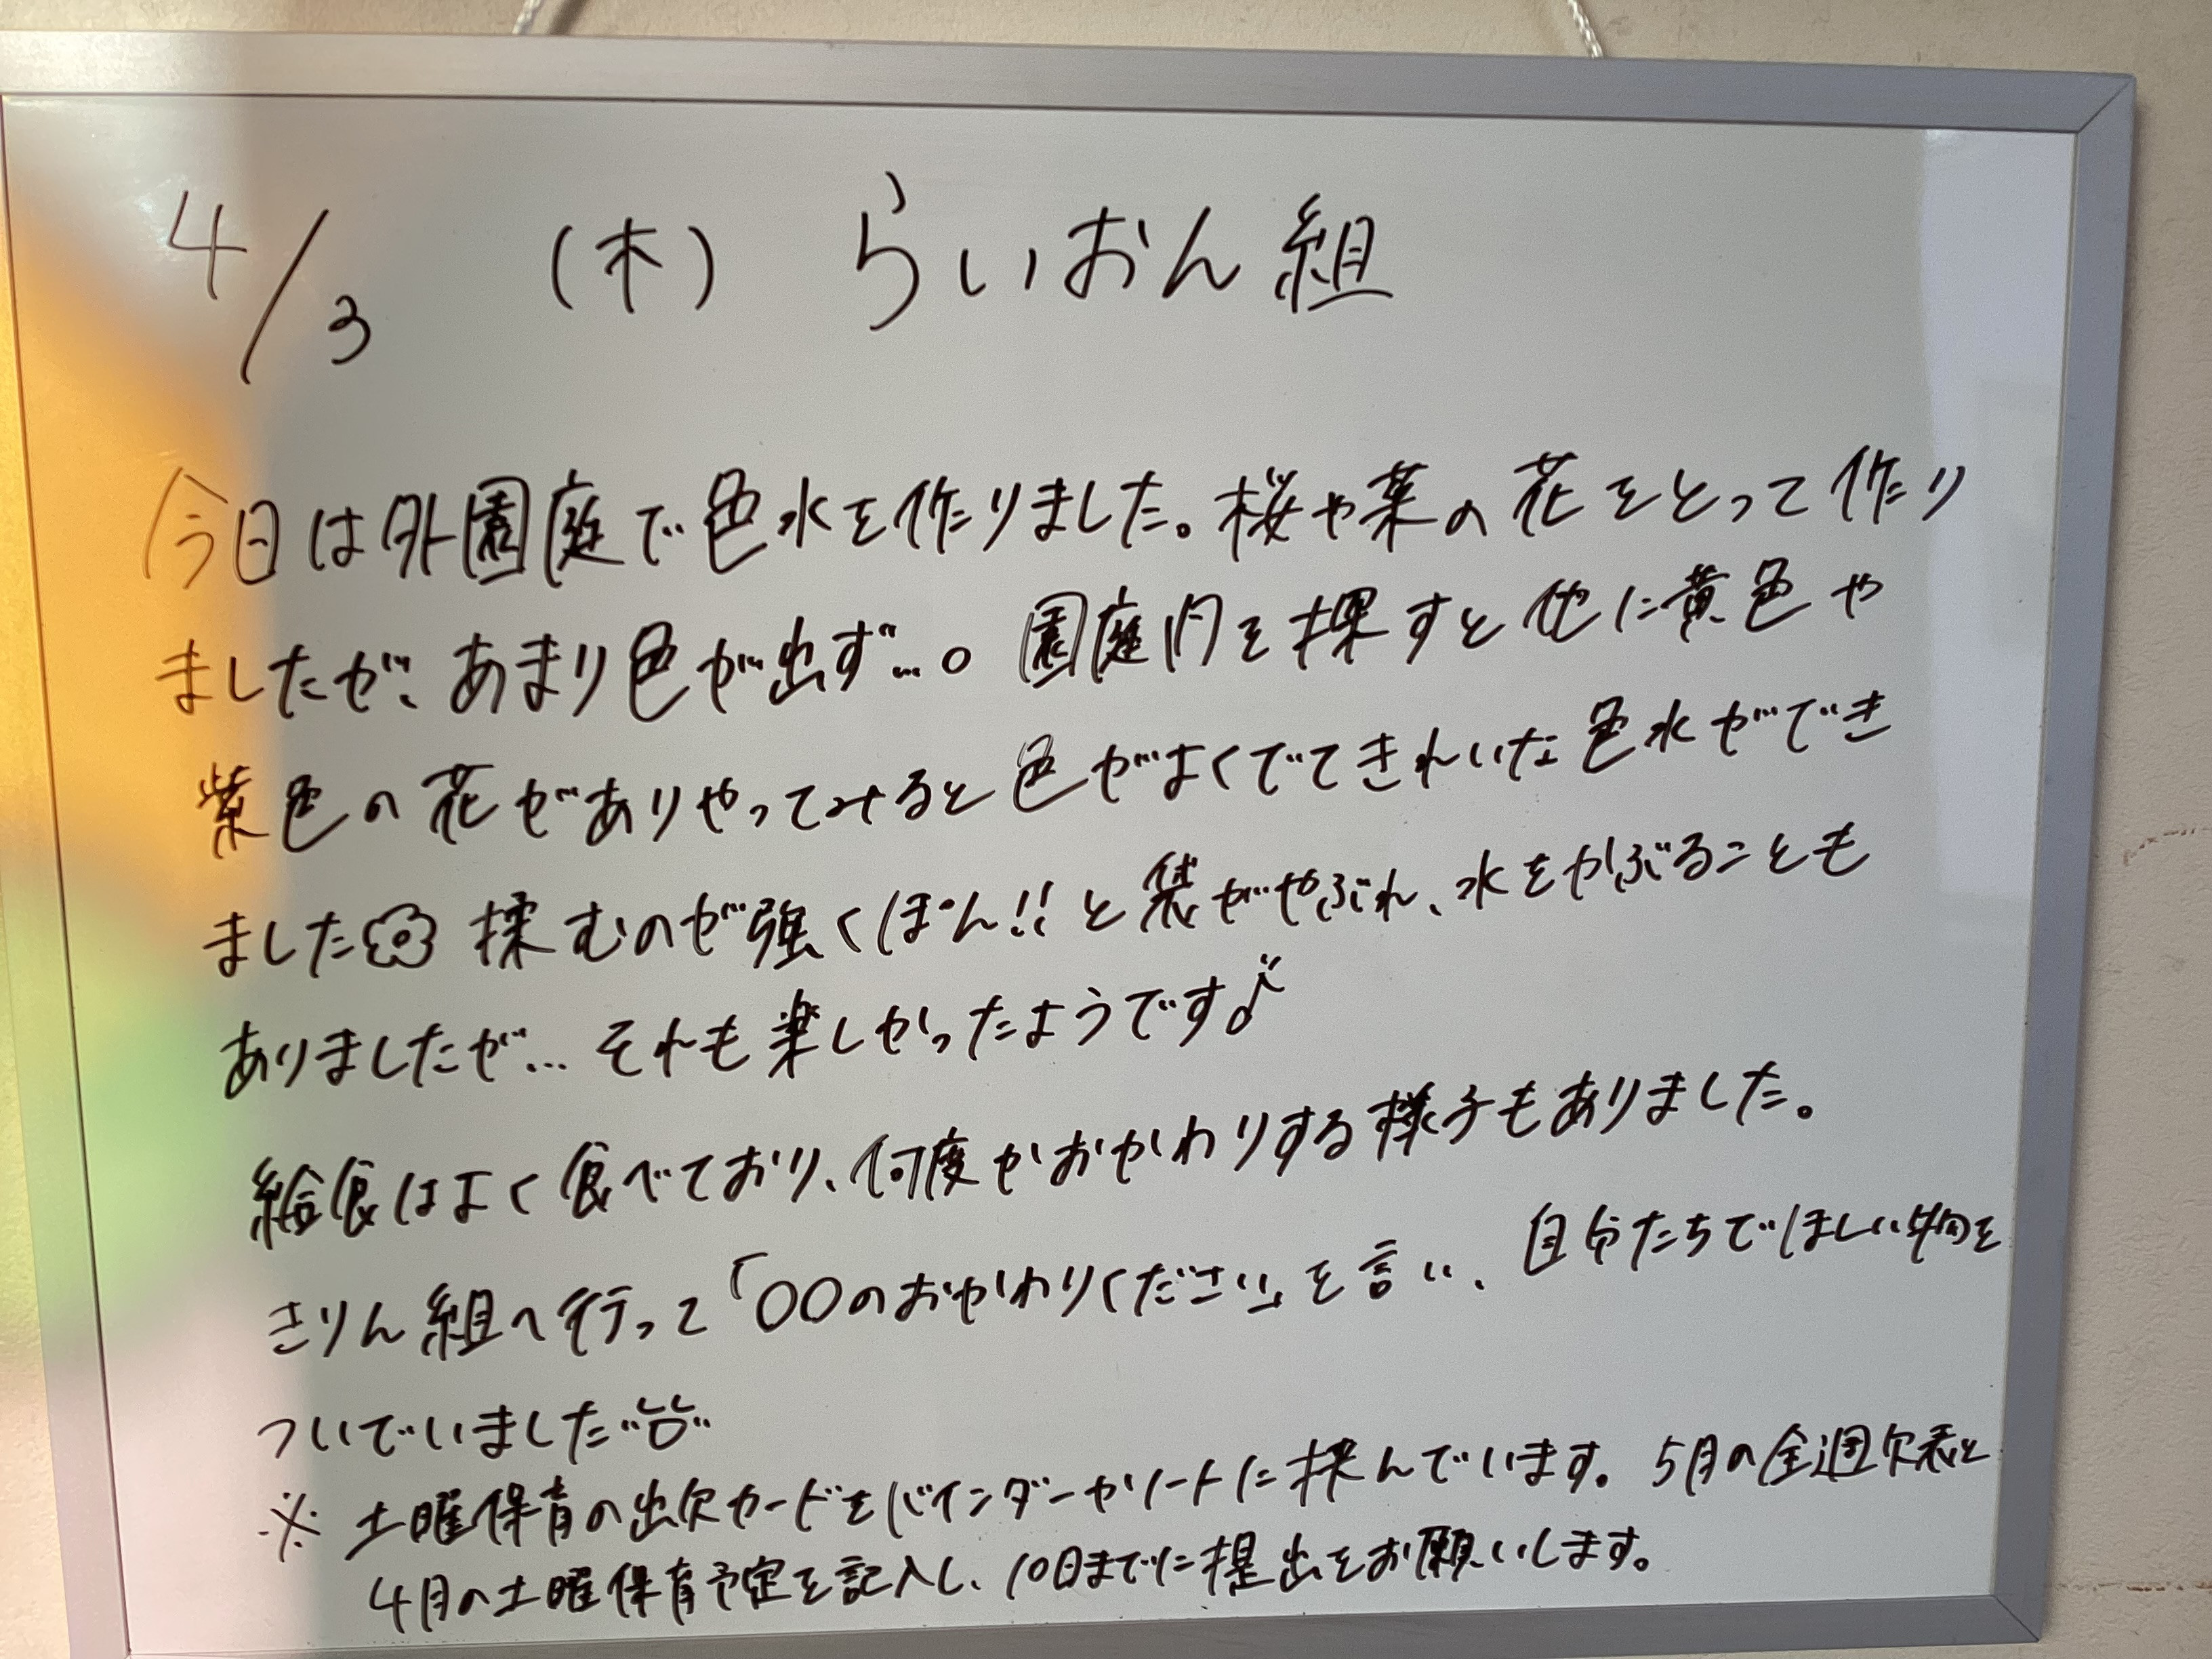 4/3 (木) らいおん組
今日は外園庭で色水を作りました。桜や菜の花をとって作り
ましたが、あまり色が出ず…。園庭内を探すと他に黄色や
紫色の花がありやってみると色がよくでてきれいな色水ができ
ました 揉むのが強くぽん!!と袋がやぶれ、水をかぶることも
ありましたが…それも楽しかったようです♪
給食はよく食べており、何度かおかわりする様子もありました。
きりん組へ行って「〇〇のおかわりください」と言い、自分たちでほしい物を
ついでいました
※ 土曜保育の出欠カードをバインダーやノートに挟んでいます。5月の全週欠表と
4月の土曜保育予定を記入し、10日までに提出をお願いします。